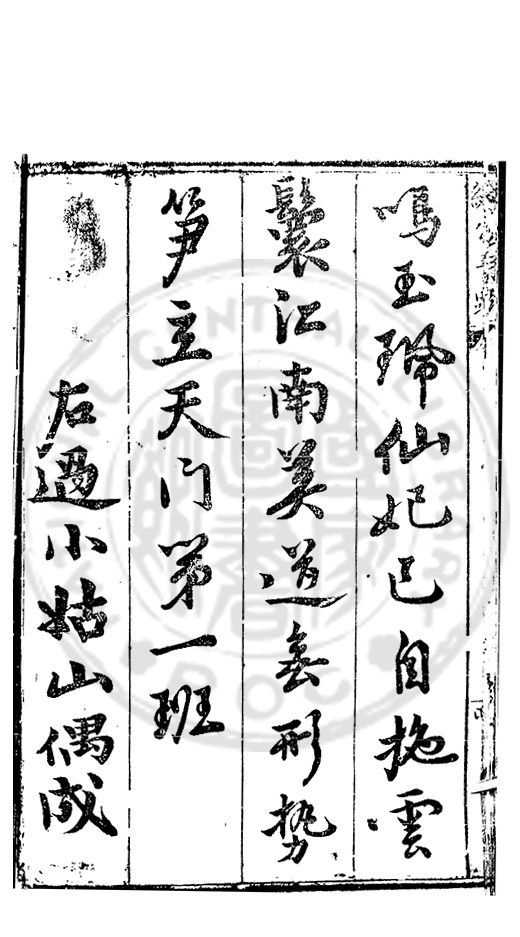 鳴玉珮仙妃已自拖雲
鬟江南莫道無形勢
笋立天门第一班
右過小姑山偶成